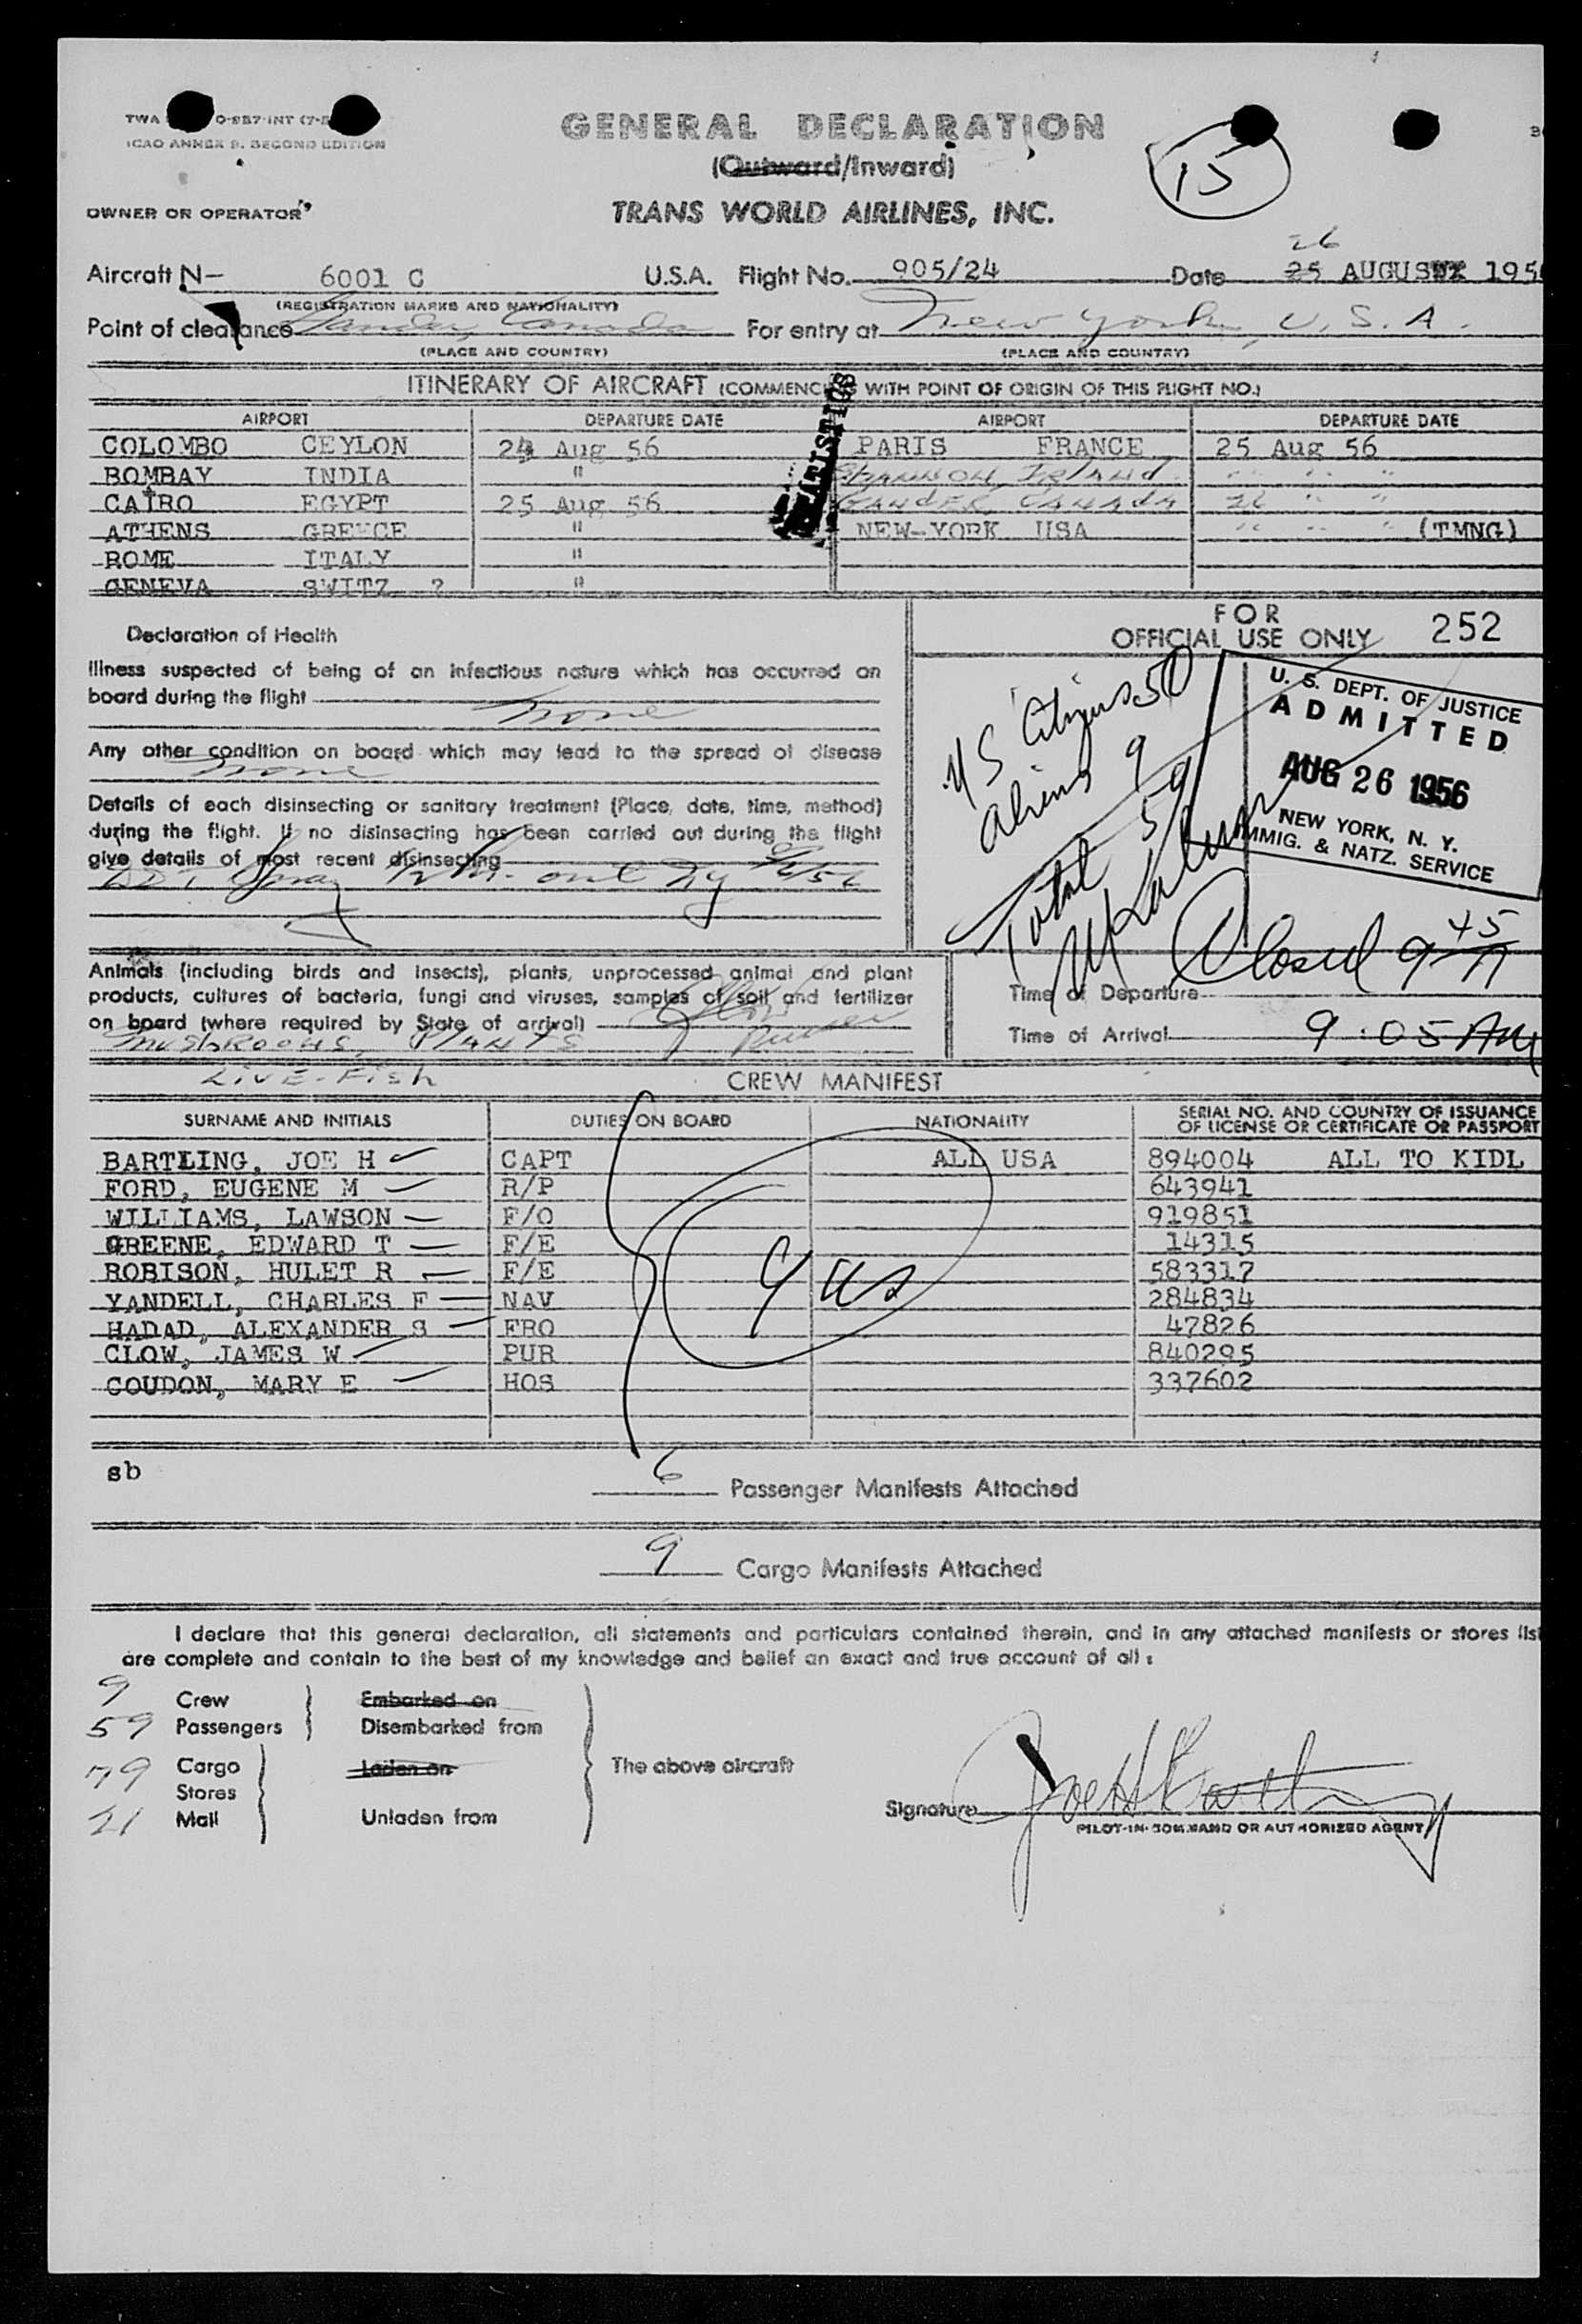 TWA O-987-INT (7-5
ICAO ANNEX 9. SECOND EDITION
GENERAL DECLARATION
(Outward/Inward)
15
OWNER OR OPERATOR
TRANS WORLD AIRLINES, INC.
26
Aircraft N- 6001 C U.S.A. Flight No. 905/24 Date 25 AUGUST 195
(REGISTRATION MARKS AND NATIONALITY)
Point of clearance Gander, Canada For entry at New York, U.S.A.
(PLACE AND COUNTRY) (PLACE AND COUNTRY)
ITINERARY OF AIRCRAFT (COMMENCING WITH POINT OF ORIGIN OF THIS FLIGHT NO.)
STATISTICS
AIRPORT DEPARTURE DATE AIRPORT DEPARTURE DATE
COLOMBO CEYLON 24 Aug 56 PARIS FRANCE 25 Aug 56
BOMBAY INDIA " SHANNON, IRELAND " " "
CAIRO EGYPT 25 Aug 56 GANDER, CANADA 26 " "
ATHENS GREECE " NEW-YORK USA " " " (TMNG)
ROME ITALY "
GENEVA SWITZ ? "
Declaration of Health
FOR
OFFICIAL USE ONLY 252
Illness suspected of being of an infectious nature which has occurred on
board during the flight
None
Any other condition on board which may lead to the spread of disease
None
Details of each disinsecting or sanitary treatment (Place, date, time, method)
during the flight. If no disinsecting has been carried out during the flight
give details of most recent disinsecting
DDT Spray out
US Citizens 50
Aliens 9
Total 59
U. S. DEPT. OF JUSTICE
ADMITTED
AUG 26 1956
NEW YORK, N. Y.
IMMIG. & NATZ. SERVICE
Closed 9 45
Animals (including birds and insects), plants, unprocessed animal and plant
products, cultures of bacteria, fungi and viruses, samples of soil and fertilizer
on board (where required by State of arrival)
MUSHROOMS, PLANTS
LIVE-FISH
Time of Departure
Time of Arrival 9:05 AM
CREW MANIFEST
SURNAME AND INITIALS DUTIES ON BOARD NATIONALITY SERIAL NO. AND COUNTRY OF ISSUANCE
OF LICENSE OR CERTIFICATE OR PASSPORT
BARTLING, JOE H CAPT ALL USA 894004 ALL TO KIDL
FORD, EUGENE M R/P 643941
WILLIAMS, LAWSON F/O 919851
GREENE, EDWARD T F/E 14315
ROBISON, HULET R F/E 583317
YANDELL, CHARLES F NAV 284834
HADAD, ALEXANDER S FRO 47826
CLOW, JAMES W PUR 840295
COUDON, MARY E HOS 337602
9 US
sb
6 Passenger Manifests Attached
9 Cargo Manifests Attached
I declare that this general declaration, all statements and particulars contained therein, and in any attached manifests or stores list
are complete and contain to the best of my knowledge and belief an exact and true account of all :
9 Crew Embarked on
59 Passengers Disembarked from
79 Cargo Laden on The above aircraft
Stores
21 Mail Unladen from
Signature Joe H Bartling
PILOT-IN-COMMAND OR AUTHORIZED AGENT